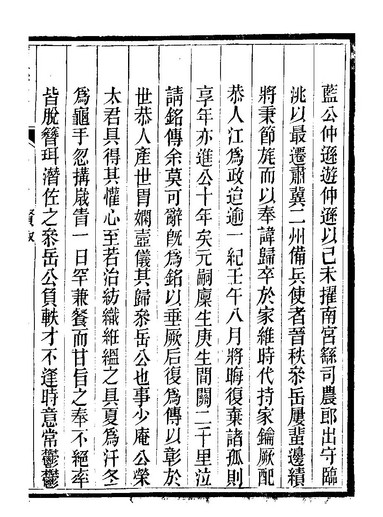 藍公仲遜遊仲遜以己未擢南宮繇司農郎出守臨
洮以最遷肅冀二州備兵使者晉秩叅岳屢蜚邊績
將秉節旄而以奉諱歸卒於家維時代持家鑰厥配
恭人江為政迨逾一紀壬午八月將晦復棄諸孤則
享年亦進公十年矣元嗣廩生庚生間關二千里泣
請銘傳余莫可辭旣為銘以垂厥后復為傳以彰於
世恭人產世胄嫻壼儀其歸叅岳公也事少庵公榮
太君具得其懽心至若治紡織絍縕之具夏為汗冬
為龜手忽搆嵗眚一日罕兼餐而甘旨之奉不絕率
皆脫簪珥潛佐之叅岳公負軼才不逢時意常鬱鬱